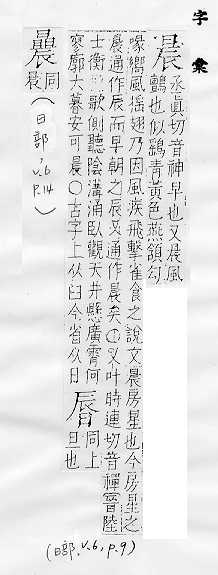 字彙
晨 丞眞切音神早也又晨風
鸇也似鷂青黃色燕頷勾
喙嚮風搖翅乃因風疾飛擊雀食之說文晨房星也今房星之
晨通作辰而早朝之辰又通作晨矣〇又叶時連切音禪晉陸
士衡 歌側聽陰溝涌臥觀天井懸廣霄何
寥廓大暮安可晨〇古字上从臼今省从日 同上
旦也
同
(日部, v.6
p.14)
(日部, v.6, p.9)